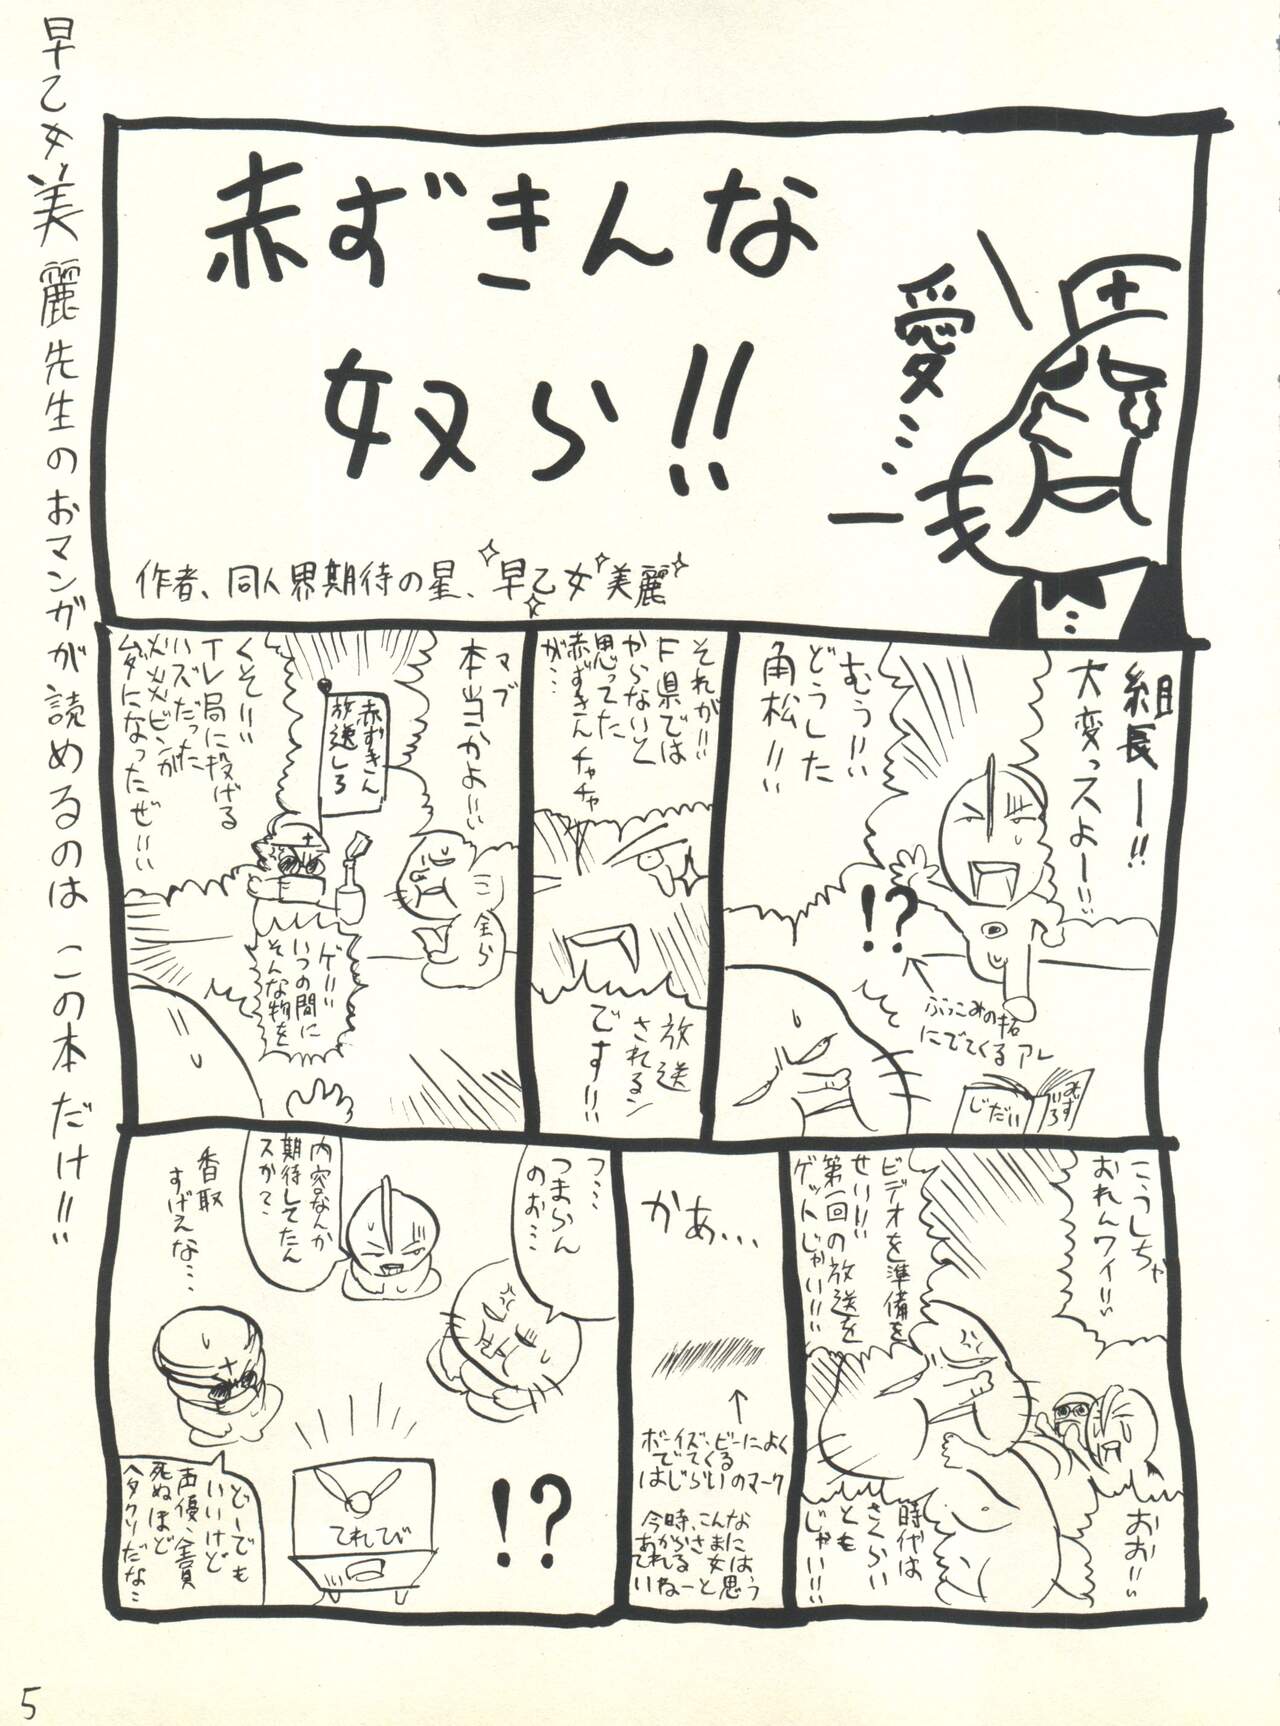 早乙女美麗先生のおマンガが読めるのは この本だけ!!!
赤ずきんな
奴ら!!
愛…
作者、同人界期待の星、早乙女美麗
組長ー!!
大変っスよー!!
むぅ!!
どうした
角松!!
!?
ぶっこみの拓
にでてくるアレ
むすいろ
じだい
それが!!
F県では
やらないと
思ってた
赤ずきんチャチャ
が…
放送
されるン
です!!!
マブ
本当かよ!!
赤ずきん
放送しろ
全ら
くそ!!!
TV局に投げる
ハズだった
火炎ビンが
ムダになったぜ!!!
ゲ!!!
いつの間に
そんな物を
こうしちゃ
おれんワイ!!!
ビデオを準備を
せい!!!
第一回の放送を
ゲットじゃい!!!
おお!!!
時代は
さくらい
とも
じゃい!!
かぁ…
ボーイズ・ビーによく
でてくる
はじらいのマーク
今時、こんな
あからさまに
てれる女は
いねーと思う
つ…
つまらん
のお…
内容なんか
期待してたん
スか?
香取
すげえな…
!?
てれてび
どーでも
いいけど
声優、全員
死ぬほど
ヘタクソだな…
5